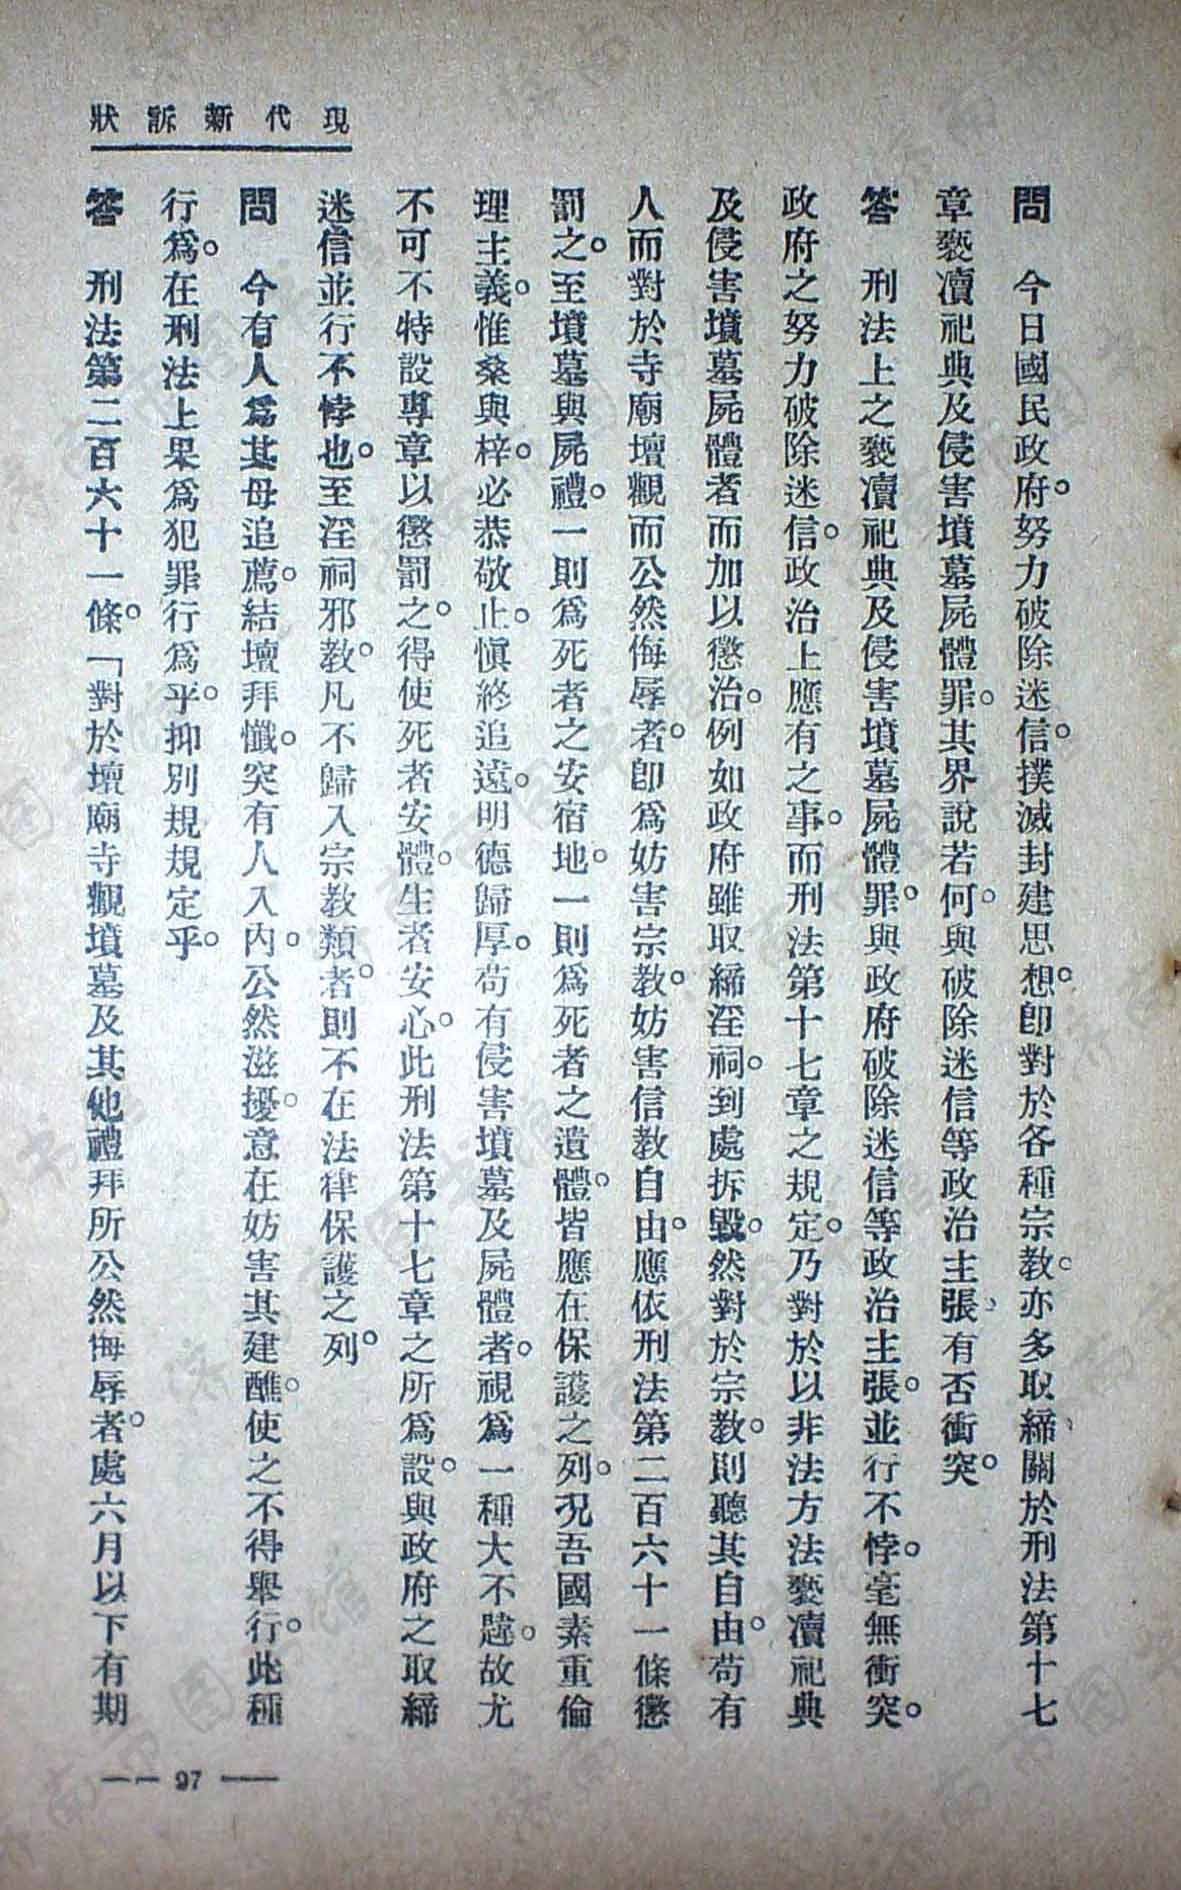 現代新訴狀
問　今日國民政府。努力破除迷信。撲滅封建思想。卽對於各種宗教。亦多取締、關於刑法第十七
章褻瀆祀典及侵害墳墓屍體罪。其界說若何。與破除迷信等政治主張、有否衝突。
答　刑法上之褻瀆祀典及侵害墳墓屍體罪。與政府破除迷信等政治主張。並行不悖。毫無衝突。
政府之努力破除迷信。政治上應有之事。而刑法第十七章之規定。乃對於以非法方法褻瀆祀典
及侵害墳墓屍體者而加以懲治。例如政府雖取締淫祠。到處拆毀。然對於宗教。則聽其自由。苟有
人而對於寺廟壇觀而公然侮辱者。卽爲妨害宗教。妨害信教自由。應依刑法第二百六十一條懲
罰之。至墳墓與屍禮。一則爲死者之安宿地。一則爲死者之遺體。皆應在保護之列。况吾國素重倫
理主義。惟桑與梓。必恭敬止。愼終追遠。明德歸厚。苟有侵害墳墓及屍體者。視爲一種大不韙。故尤
不可不特設專章以懲罰之。得使死者安體。生者安心。此刑法第十七章之所爲設。與政府之取締
迷信並行不悖也。至淫祠邪教。凡不歸入宗教類者。則不在法律保護之列。
問　今有人爲其母追薦。結壇拜懺。突有人入內。公然滋擾。意在妨害其建醮。使之不得舉行。此種
行爲。在刑法上果爲犯罪行爲乎。抑別規規定乎。
答　刑法第二百六十一條。「對於壇廟寺觀墳墓及其他禮拜所公然侮辱者。處六月以下有期
—— 97 ——